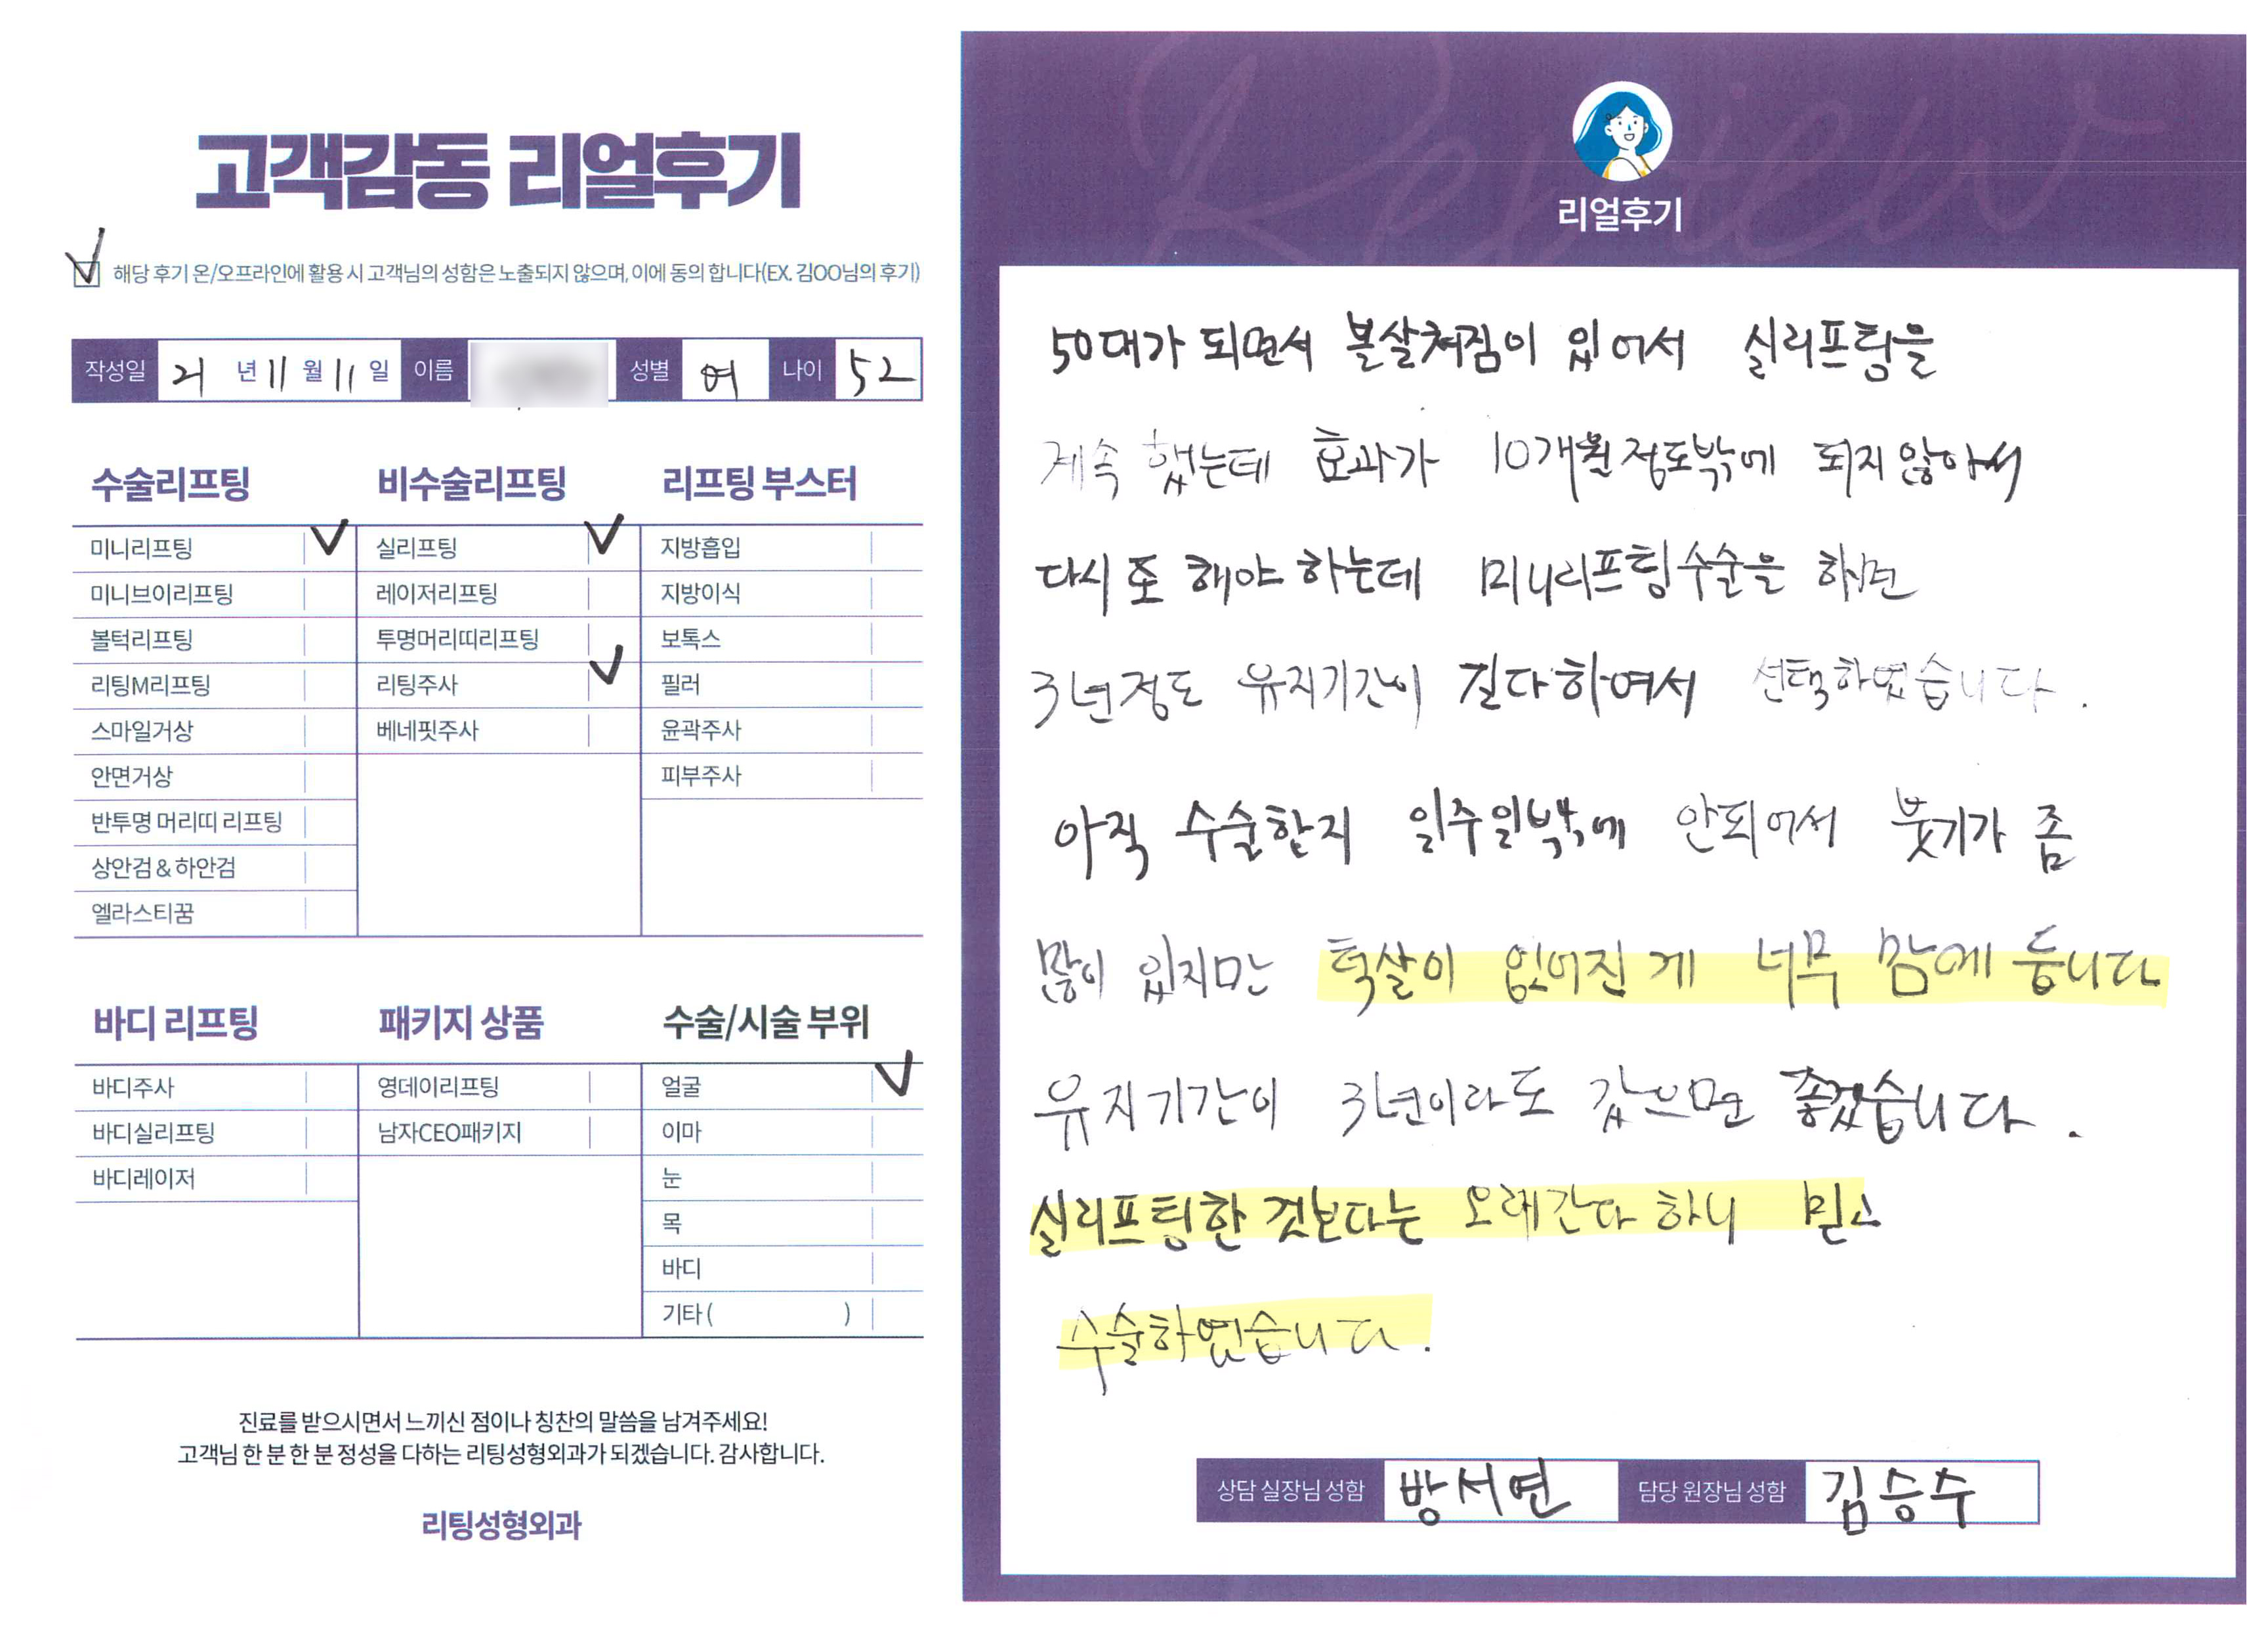 고객감동 리얼후기
해당 후기 온/오프라인에 활용 시 고객님의 성함은 노출되지 않으며, 이에 동의 합니다(EX. 김OO님의 후기)
작성일 21 년 11 월 11 일 이름 성별 여 나이 52
수술리프팅
미니리프팅
미니브이리프팅
볼턱리프팅
리팅M리프팅
스마일거상
안면거상
반투명 머리띠 리프팅
상안검 & 하안검
엘라스티꿈
비수술리프팅
실리프팅
레이저리프팅
투명머리띠리프팅
리팅주사
베네핏주사
리프팅 부스터
지방흡입
지방이식
보톡스
필러
윤곽주사
피부주사
바디 리프팅
바디주사
바디실리프팅
바디레이저
패키지 상품
영데이리프팅
남자CEO패키지
수술/시술 부위
얼굴
이마
눈
목
바디
기타 ( )
진료를 받으시면서 느끼신 점이나 칭찬의 말씀을 남겨주세요!
고객님 한 분 한 분 정성을 다하는 리팅성형외과가 되겠습니다. 감사합니다.
리팅성형외과
Review
리얼후기
50대가 되면서 볼살쳐짐이 있어서 실리프팅을
계속 했는데 효과가 10개월정도밖에 되지않아서
다시 또 해야 하는데 미니리프팅수술을 하면
3년정도 유지기간이 길다하여서 선택하였습니다.
아직 수술한지 일주일밖에 안되어서 붓기가 좀
많이 있지만 턱살이 없어진 게 너무 맘에 듭니다
유지기간이 3년이라도 갔으면 좋겠습니다.
실리프팅한 것보다는 오래간다 하니 믿고
수술하였습니다.
상담 실장님 성함 방서연 담당 원장님 성함 김승수